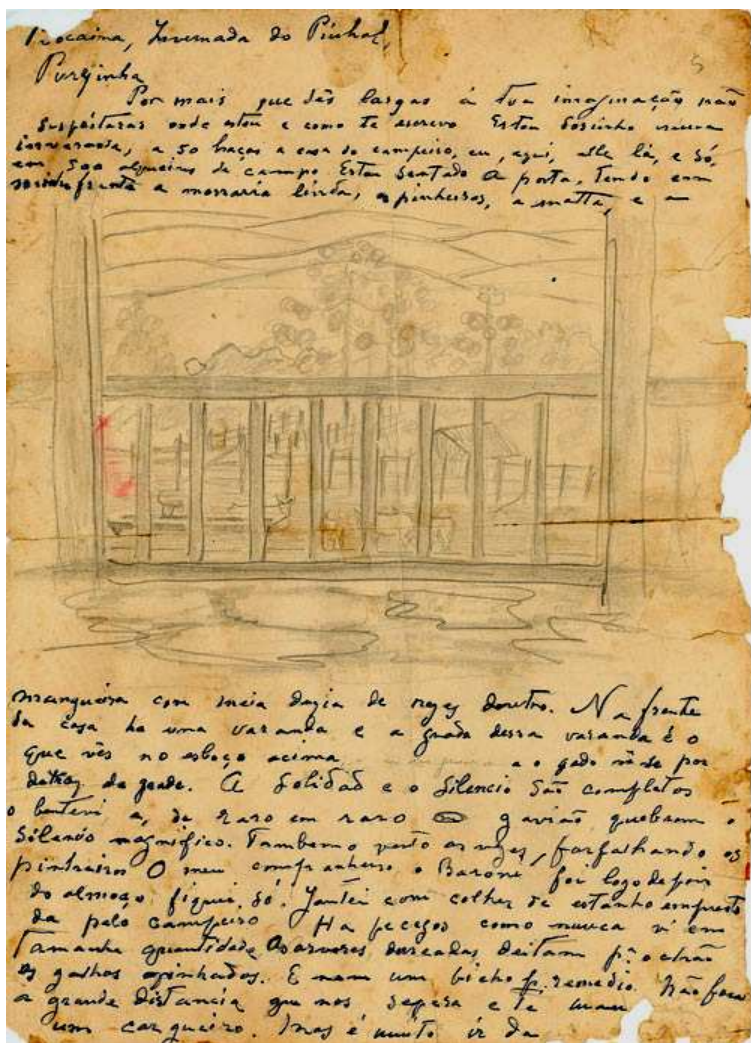 Bocaina, Invernada do Pinhal,
Purezinha
5
Por mais que dês largas á tua imaginação não
suspeitaras onde estou e como te escrevo Estou sosinho numa
invernada, a 50 braças a casa do campeiro, eu, aqui, elle lá, e só,
em 500 alqueires de campo. Estou sentado á porta, tendo em
minha frente a morraria linda, os pinheiros, a matta, e a
mangueira com meia duzia de rezes dentro. Na frente
da casa ha uma varanda e a grade dessa varanda é o
que vês no esboço acima a o gado vê-se por
detraz da grade. A Solidão e o Silencio são completos
o bentevi e, de raro em raro gavião quebram o
Silencio magnifico. Tambem o vento as vezes, farfalhando os
pinheiros O meu companheiro o Barone, foi logo depois
do almoço, fiquei só. Jantei com colher de estanho empresta
da pelo campeiro Ha pecegos como nunca vi em
Tamanha quantidade As arvores deitam p. o chão
os galhos apinhados. E nem um bicho p. remedio. Não fora
a grande distancia que nos separa e te
um cargueiro. Mas é muito ir da